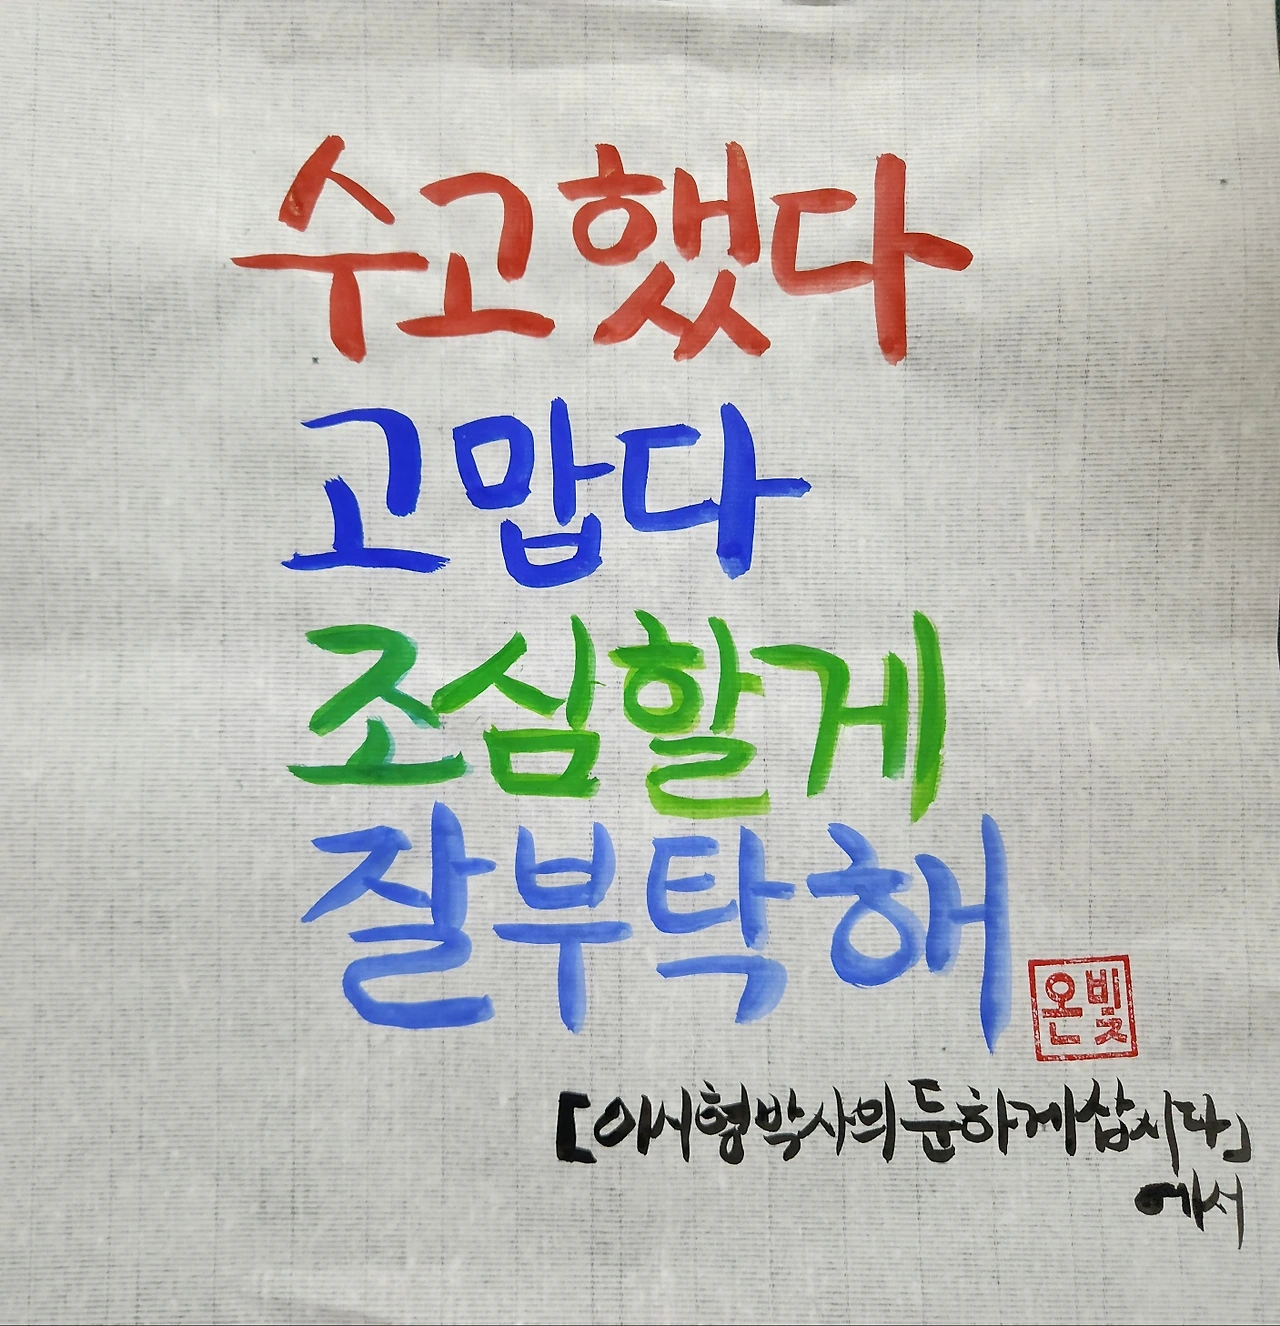 수고했다
고맙다
조심할게
잘부탁해
온빛
「이시형박사의둔하게삽시다」
에서